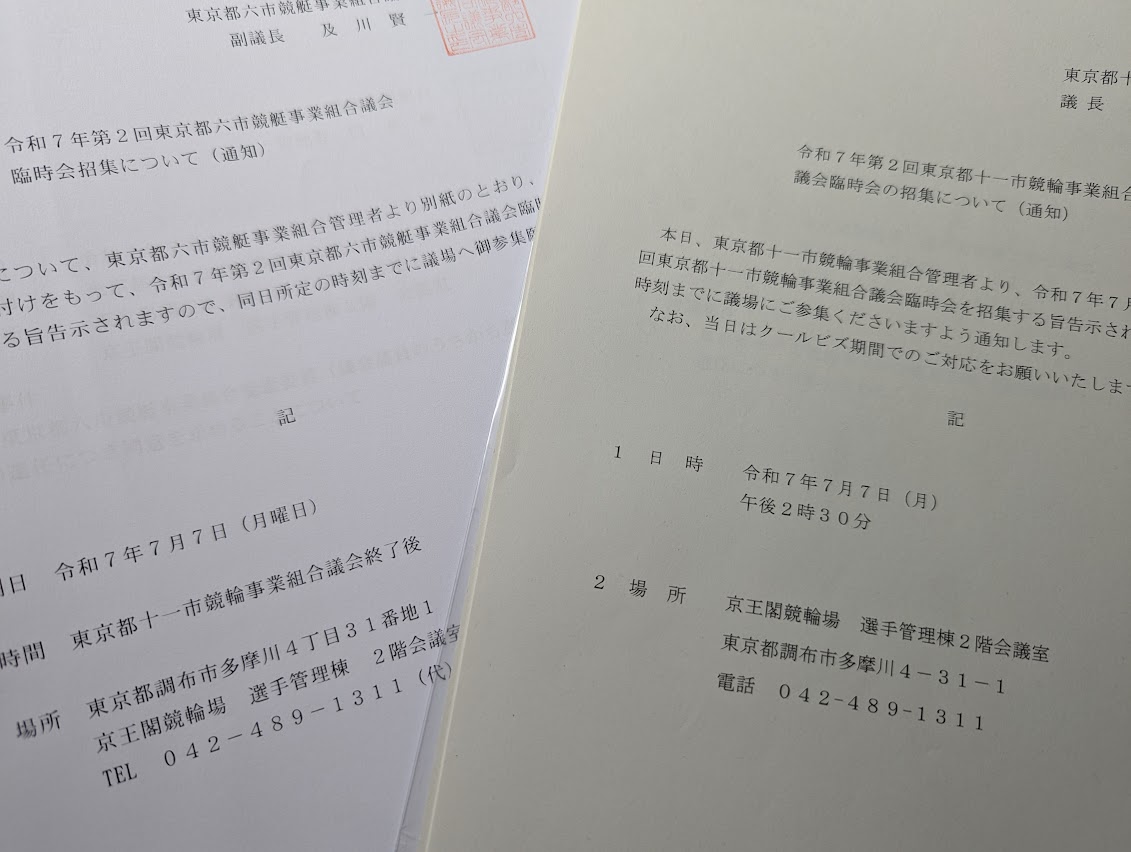 東京都六市競艇事業組合議
副議長　及　川　賢　一
令和７年第２回東京都六市競艇事業組合議会
臨時会招集について（通知）
について、東京都六市競艇事業組合管理者より別紙のとおり、
付けをもって、令和７年第２回東京都六市競艇事業組合議会臨時
る旨告示されますので、同日所定の時刻までに議場へ御参集
記
日　令和７年７月７日（月曜日）
時間　東京都十一市競輪事業組合議会終了後
場所　東京都調布市多摩川４丁目３１番地１
京王閣競輪場　選手管理棟　２階会議室
TEL　０４２－４８９－１３１１（代）
東京都十
議 長
令和７年第２回東京都十一市競輪事業組合
議会臨時会の招集について（通知）
本日、東京都十一市競輪事業組合管理者より、令和７年７月
回東京都十一市競輪事業組合議会臨時会を招集する旨告示され
時刻までに議場にご参集くださいますよう通知します。
なお、当日はクールビズ期間でのご対応をお願いいたします
記
１　日　時　令和７年７月７日（月）
午後２時３０分
２　場　所　京王閣競輪場　選手管理棟２階会議室
東京都調布市多摩川４－３１－１
電話　０４２-４８９-１３１１